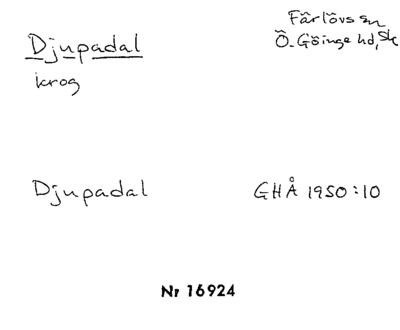 Djupadal
krog
Färlövs sn
Ö. Göinge hd, Sk
Djupadal
GHÅ 1950:10
Nr 16924